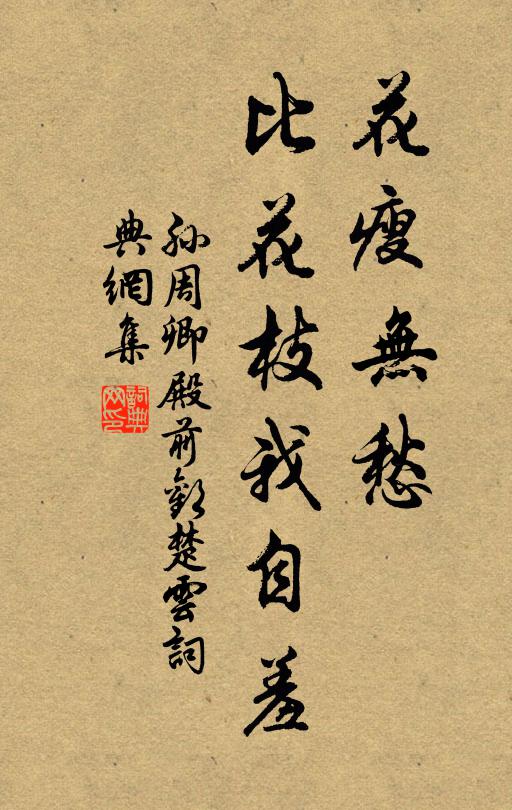 花瘦無愁
比花枝我自羞
孫周卿殿前歡楚雲詞
典網集
詞典網印